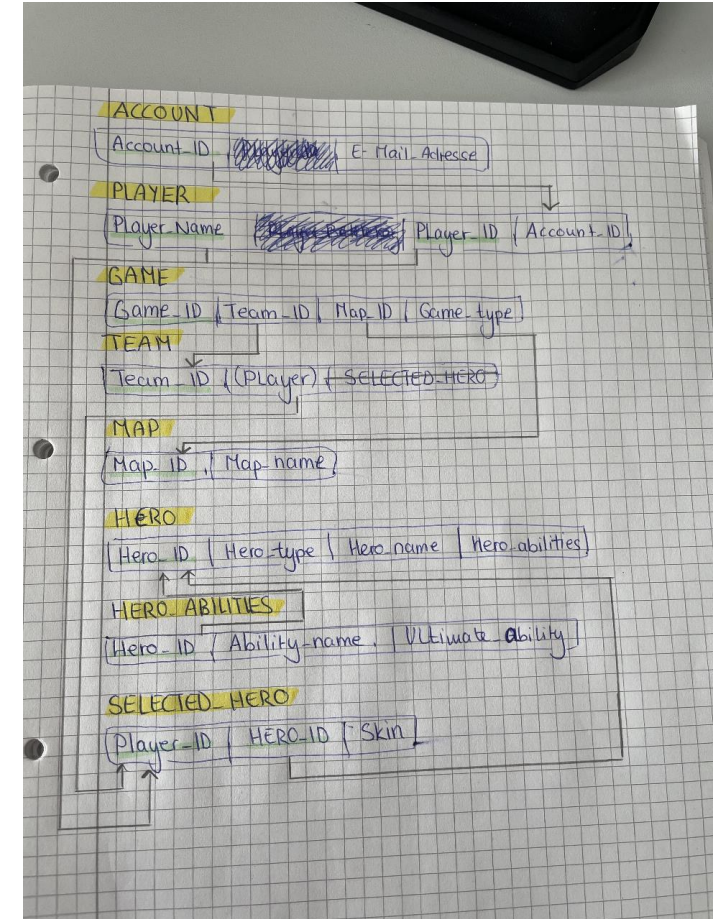 ACCOUNT
Account_ID | E-Mail_Adresse
PLAYER
Player_Name | Player_ID | Account_ID
GAME
Game_ID | Team_ID | Map_ID | Game_type
TEAM
Team_ID | (Player) | SELECTED_HERO
MAP
Map_ID | Map_name
HERO
Hero_ID | Hero_type | Hero_name | hero_abilities
HERO_ABILITIES
Hero_ID | Ability_name | Ultimate_ability
SELECTED_HERO
Player_ID | HERO_ID | Skin